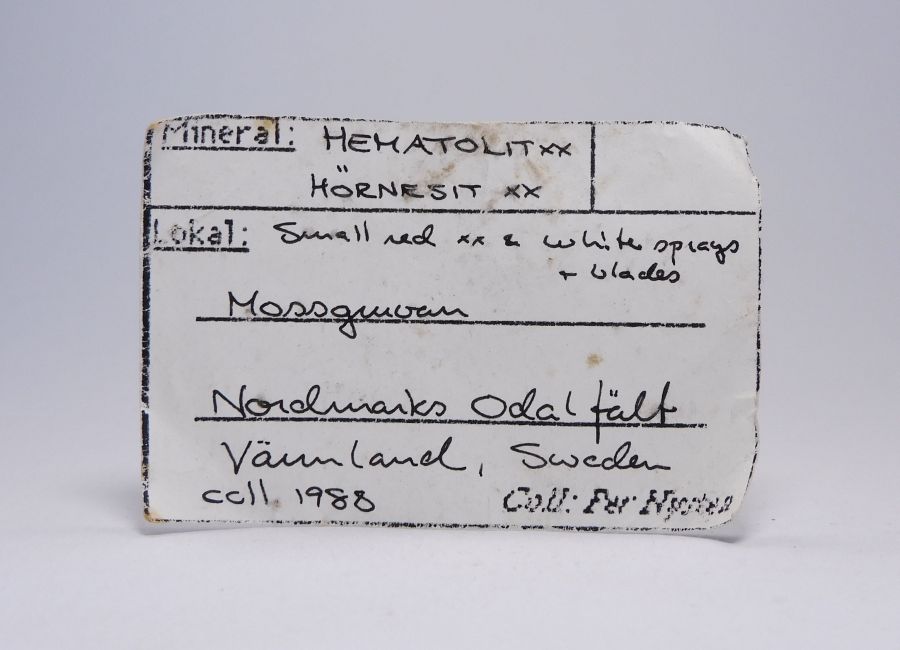 Mineral: HEMATOLIT xx
HÖRNESIT xx
Lokal: Small red xx & white sprays
+ blades
Mossgruvan
Nordmarks Odalfält
Värmland, Sweden
coll. 1988 Coll: Per Nysten